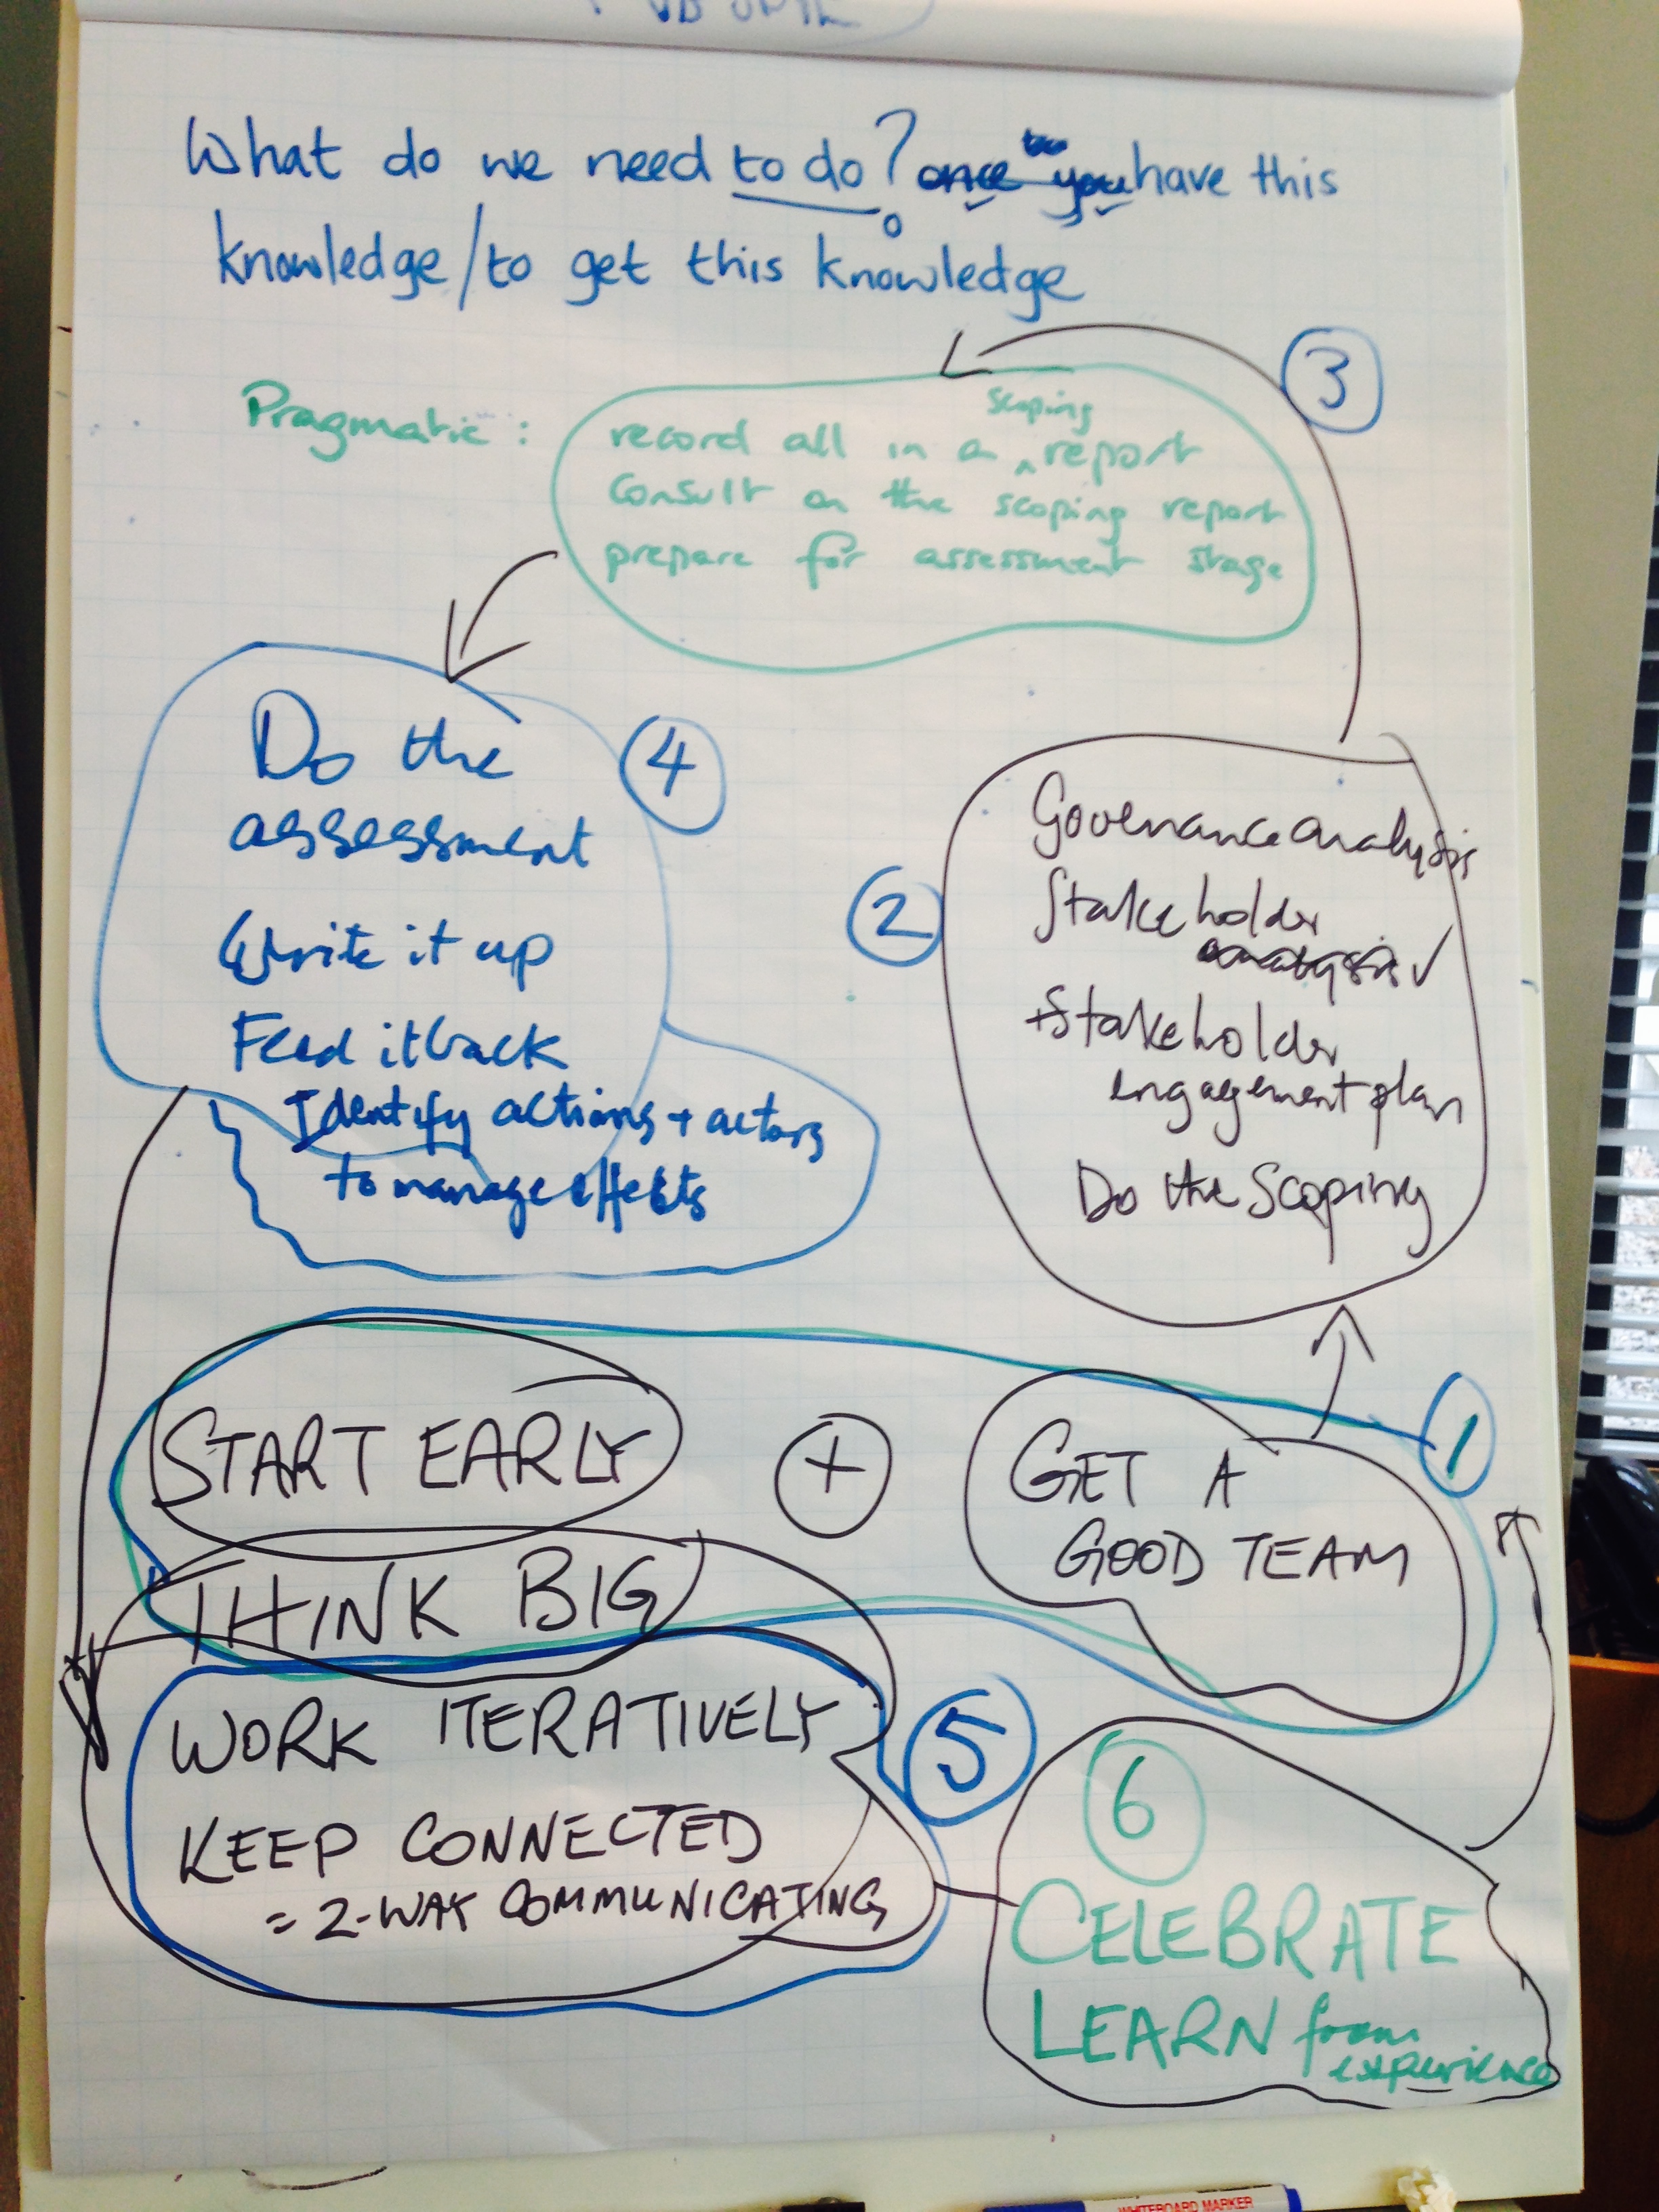 What do we need to do? once you have this
knowledge/to get this knowledge
3
Pragmatic:
scoping
record all in a ^ report
Consult on the scoping report
prepare for assessment stage
Do the
assessment
Write it up
Feed it back
Identify actions + actors
to manage effects
4
2
Governance analysis
Stakeholder
analysis ✓
+ Stakeholder
engagement plan
Do the Scoping
START EARLY
+
GET A
GOOD TEAM
1
THINK BIG
WORK ITERATIVELY
KEEP CONNECTED
= 2-WAY COMMUNICATING
5
6
CELEBRATE
LEARN from
experience
WHITEBOARD MARKER